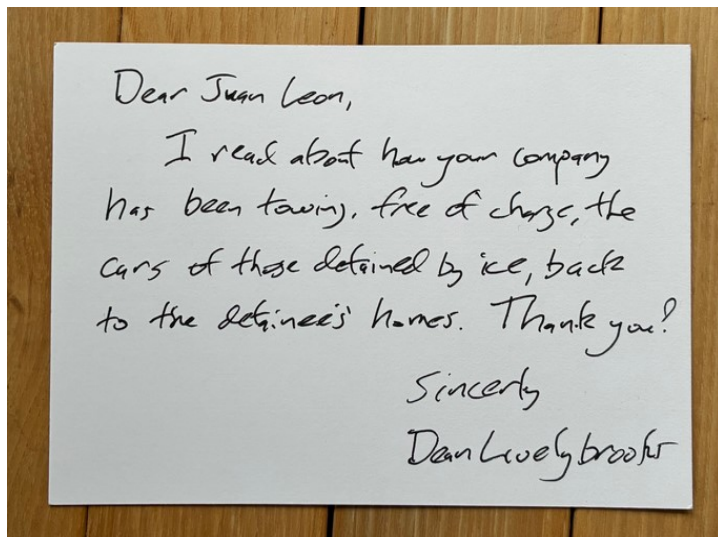 Dear Juan Leon,
I read about how your company
has been towing, free of charge, the
cars of those detained by ice, back
to the detainee's homes. Thank you!
Sincerly
Dean Livelybrooks